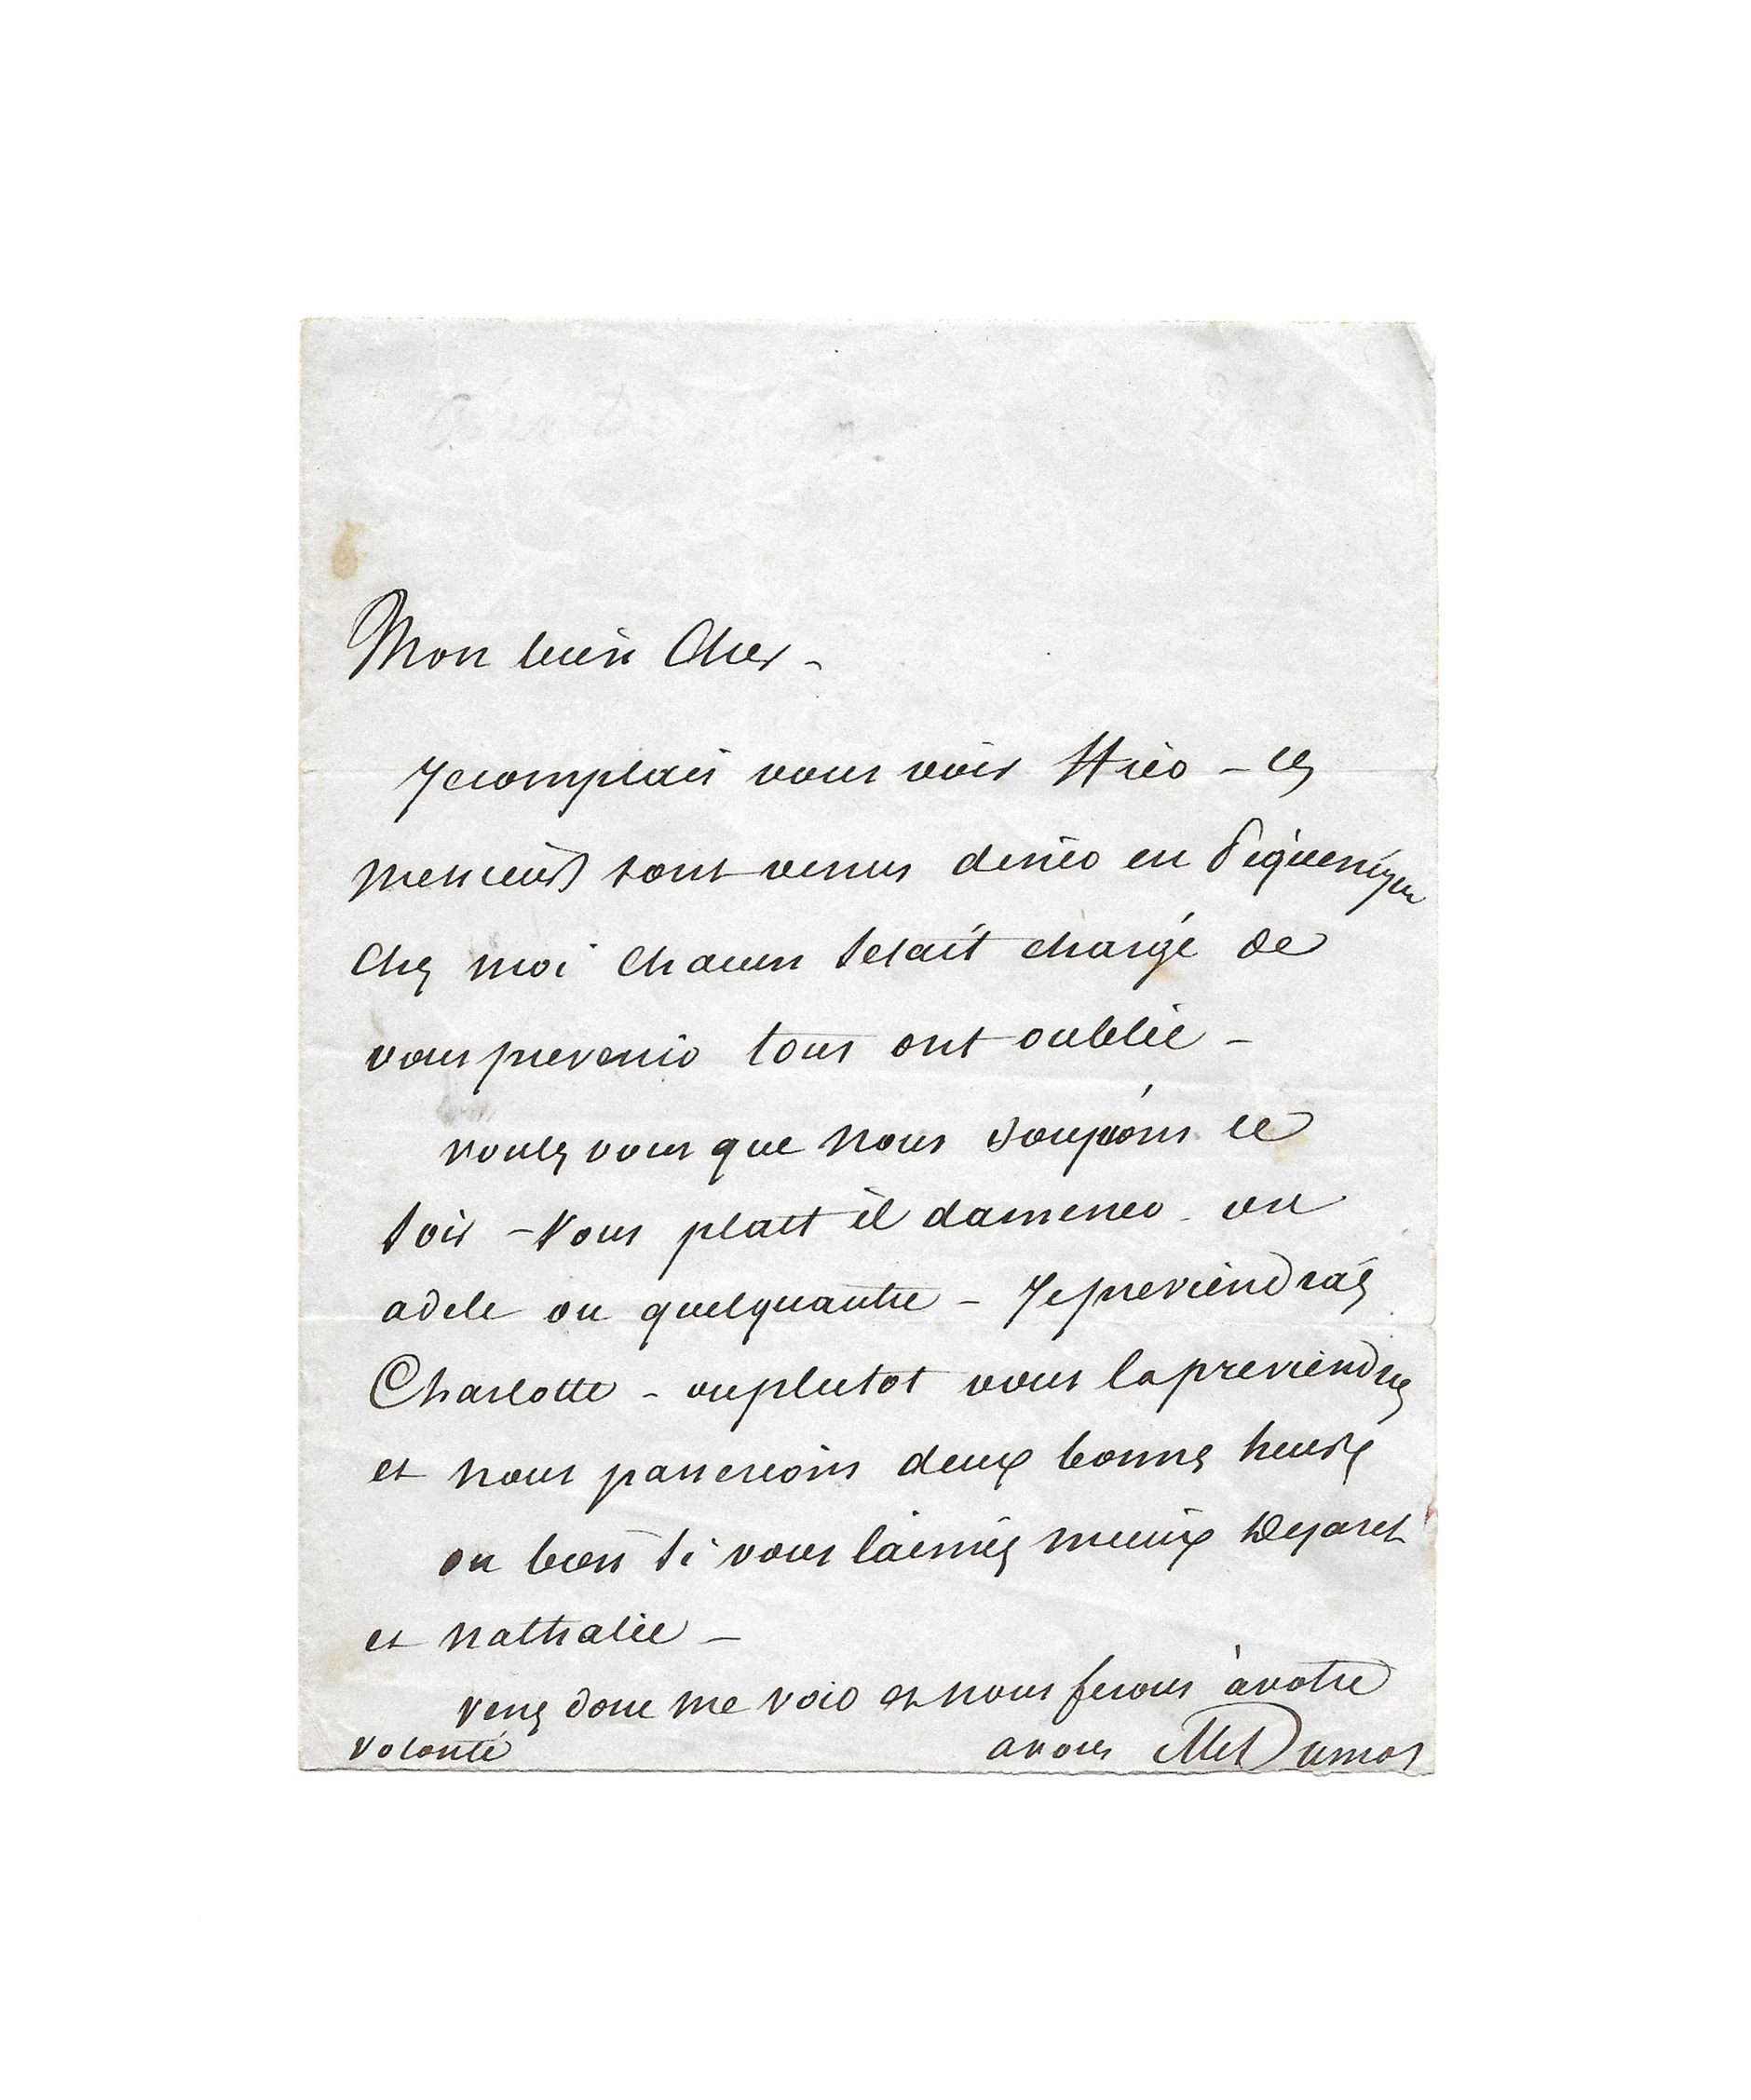 Mon bien Cher -
Je comptais vous voir Hier - ces
messieurs sont venus diner en Piquenique
Chez moi Chacun setait chargé de
vous prevenir tous ont oublié -
voulez vous que nous soupions ce
soir - Vous plait il damener ou
adele ou quelquautre - Je previendrés
Charlotte - ou plutot vous la previendrez
et nous passerions deux bonnes heures
ou bien si vous laimiez mieux
et nathalie -
venez donc me voir et nous ferons à votre
volonté a vous Alex Dumas